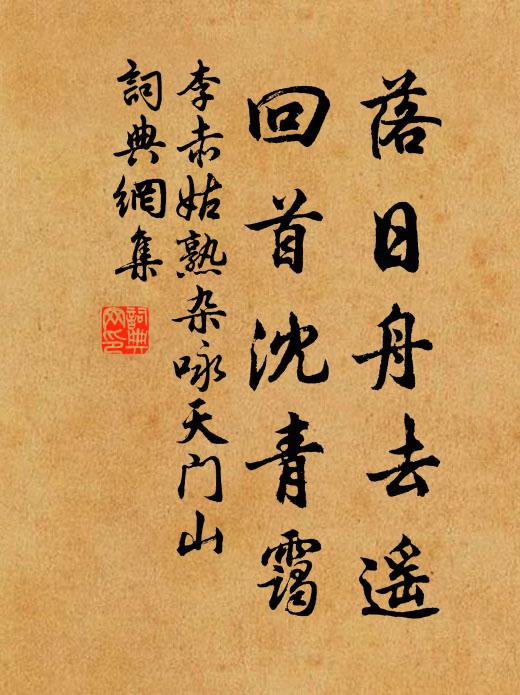 落日舟去遥
回首沈青霭
李赤姑熟杂咏天门山
詞典網集
詞典網印